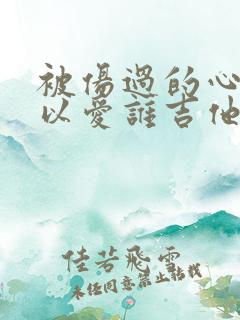 被傷過的心
以愛誰吉他
佳若飛雪
未經同意禁止轉載